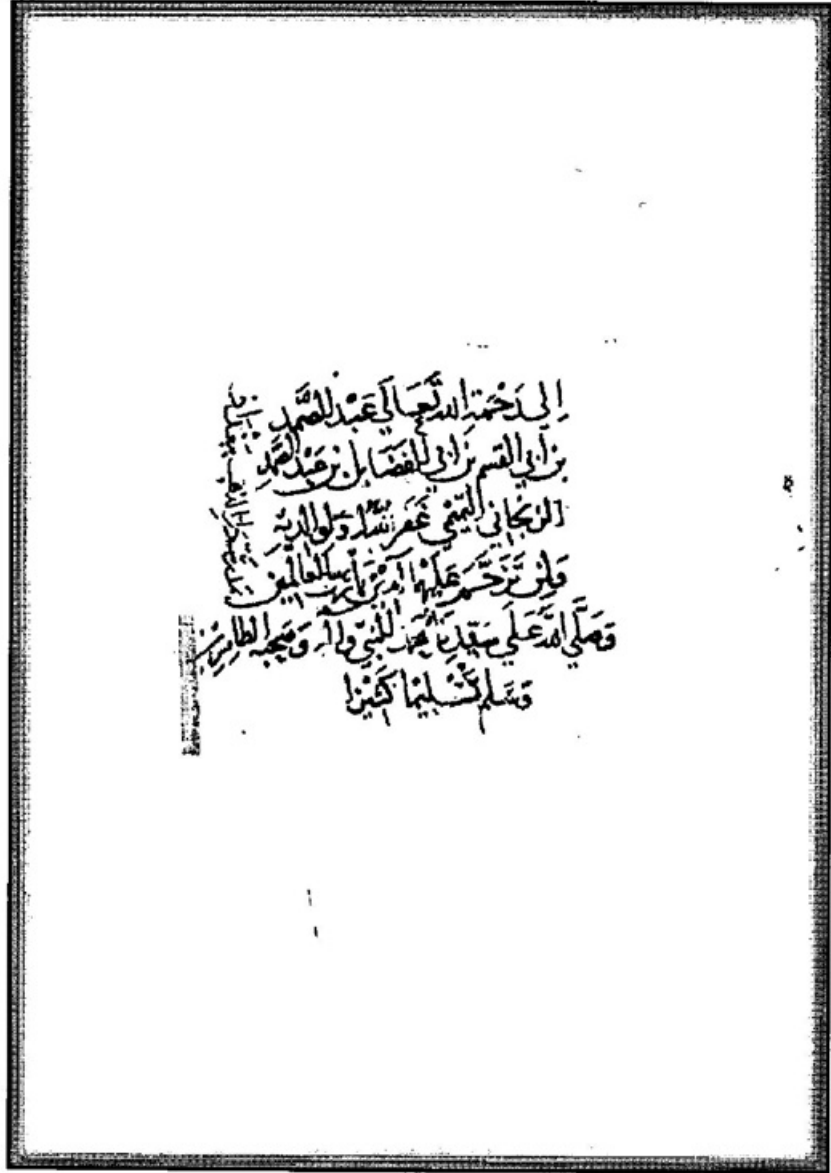 إلى رَحْمَةِ الله تَعَالَى عَبْد الصَّمَد
بن أبي القسم بن أبي الفضَائل بن عَبْد الصَّمَد
الزنجاني غَفَر الله وَلوَالديْه
وَلمن تَرَحَّمَ عَلَيْهما آمين يَا رب العَالمين
وَصَلَّى الله عَلَى سَيّدِنَا محمد النبيّ وآله وَصَحْبه الطاهرين
وَسَلم تَسْليمًا كَثيرًا